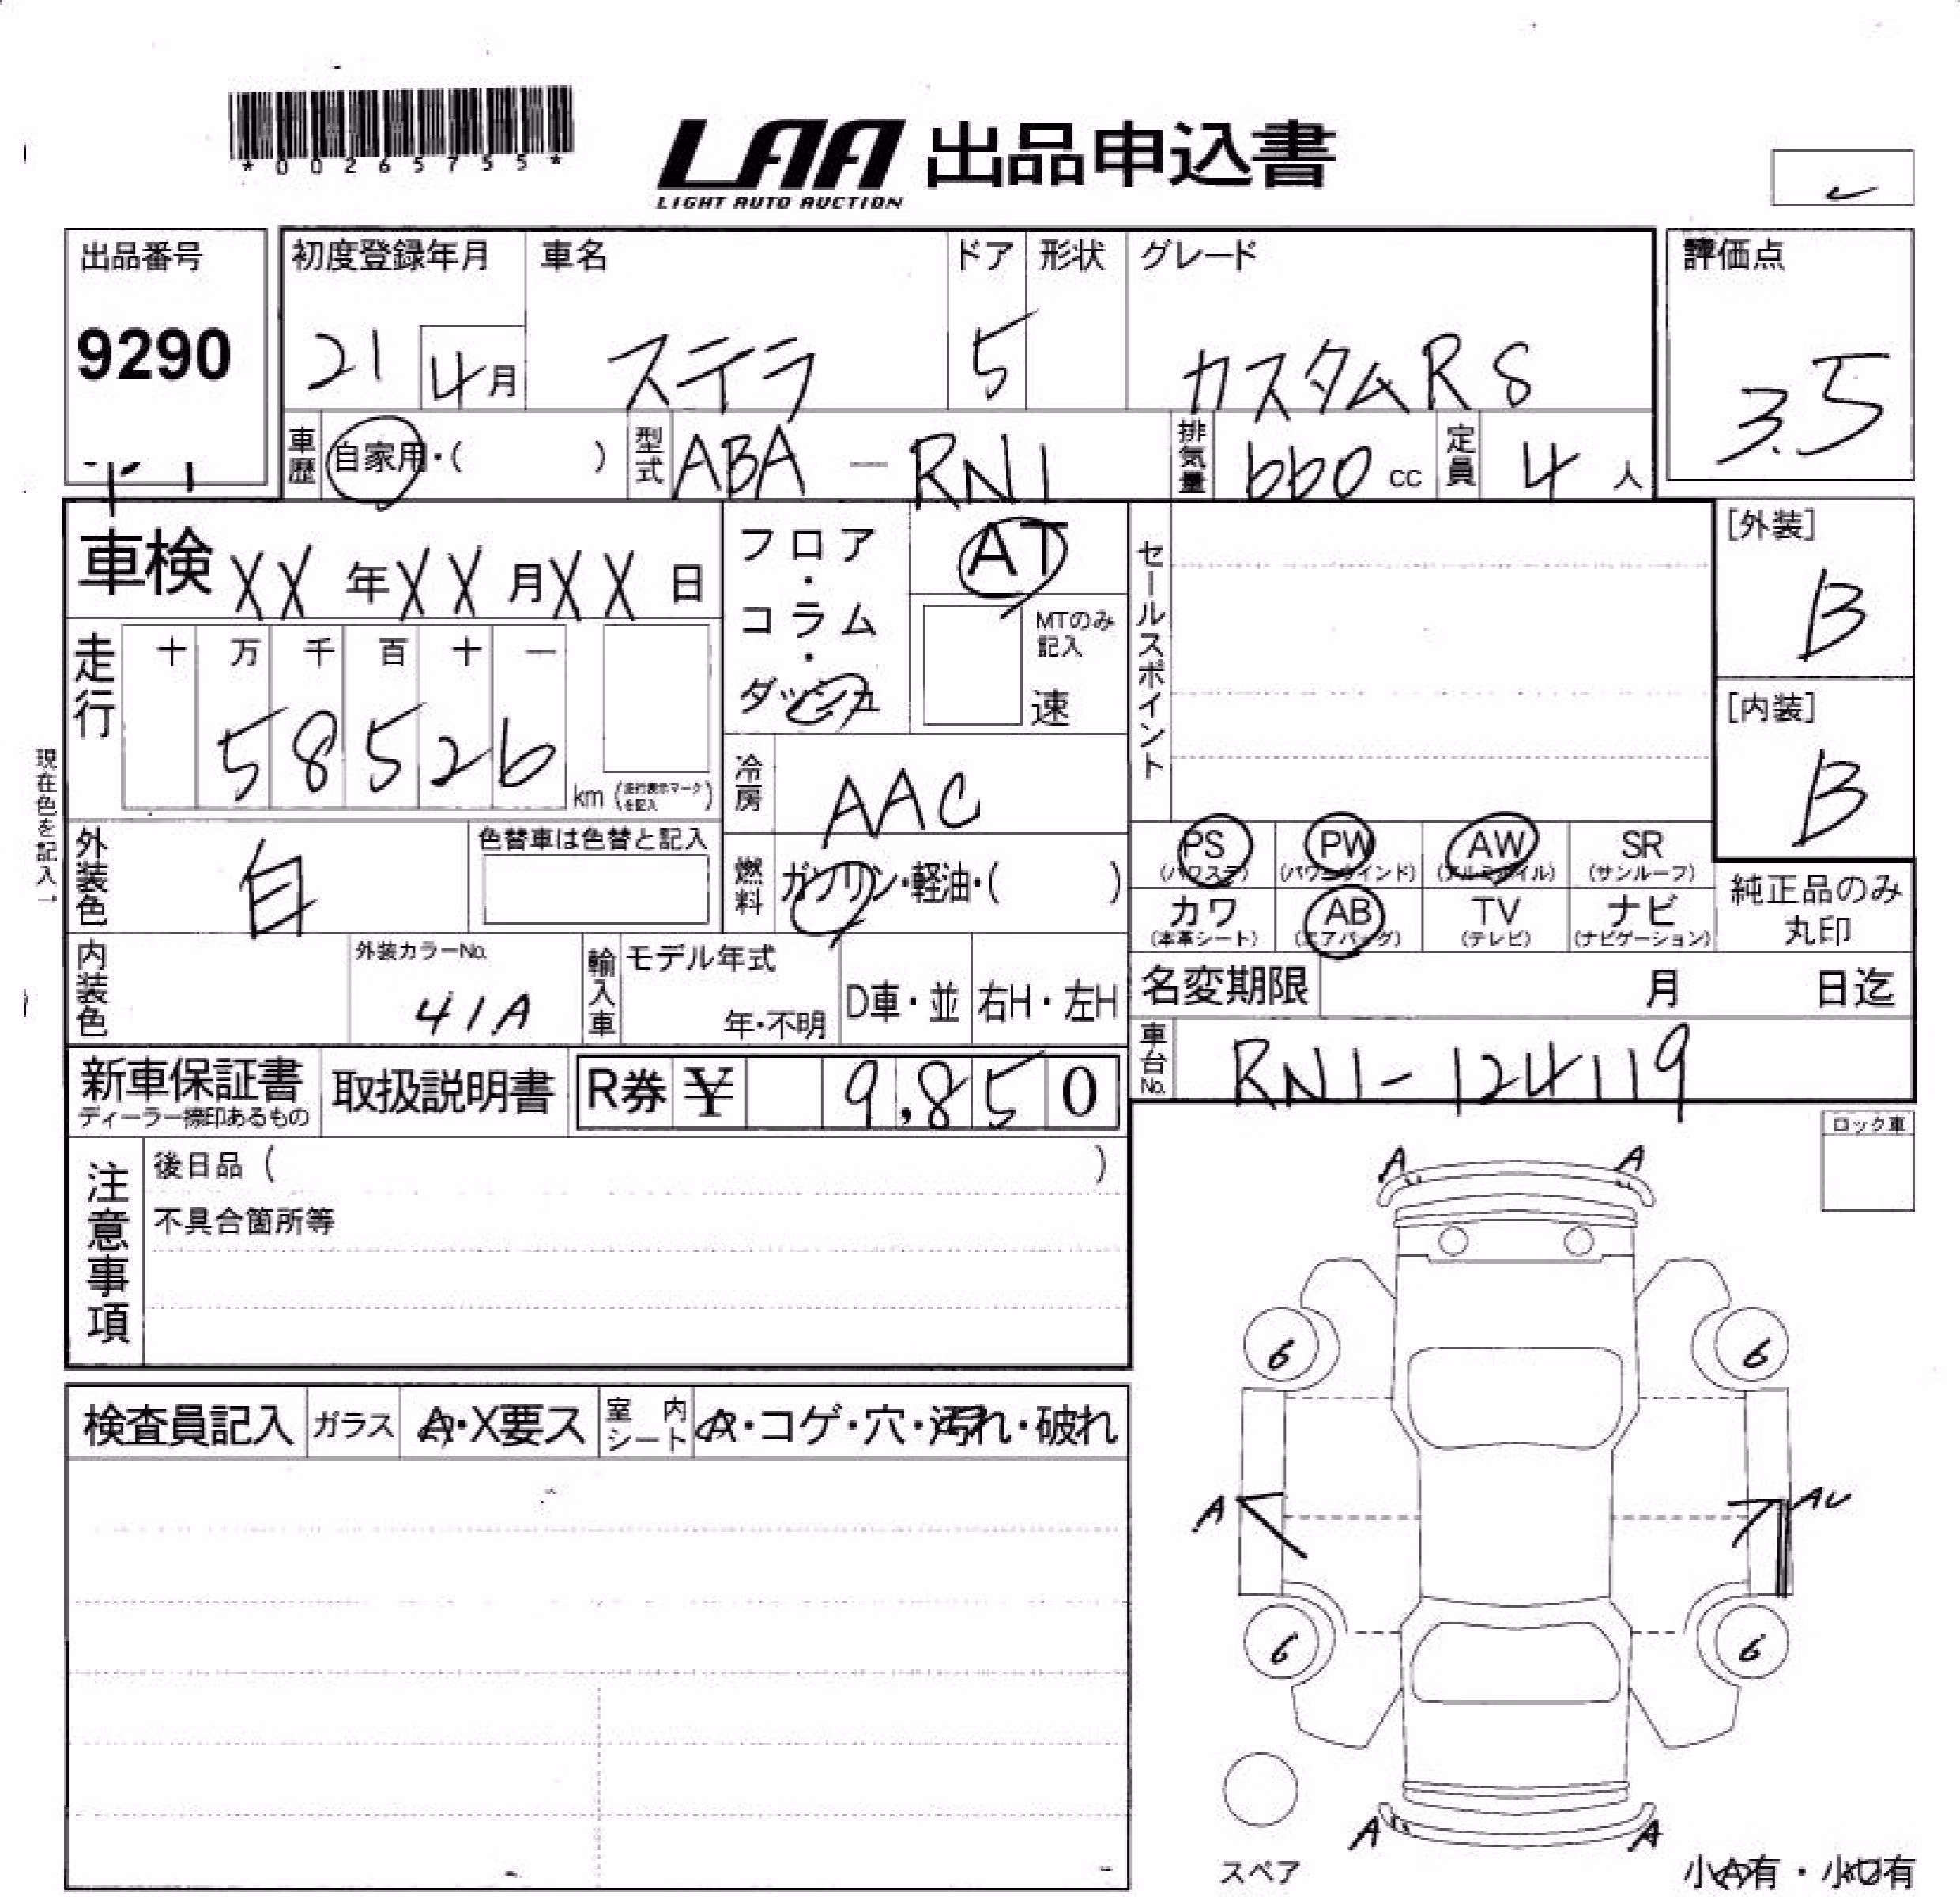 *00265755*
LAA 出品申込書
LIGHT AUTO AUCTION
出品番号
9290
初度登録年月
21
4月
車名
ステラ
ドア
5
形状
グレード
カスタムRS
評価点
3.5
車歴
自家用・( )
型式
ABA - RN1
排気量
660 cc
定員
4 人
車検 XX 年 XX 月 XX 日
走行
十 万 千 百 十 一
58526
km (走行表示マークを記入)
フロア・コラム・ダッシュ
AT
MTのみ記入
速
セールスポイント
[外装]
B
[内装]
B
冷房
AAC
現在色を記入→
外装色
白
色替車は色替と記入
燃料
ガソリン・軽油・( )
PS (パワステ)
PW (パワーウインド)
AW (アルミホイル)
SR (サンルーフ)
カワ (本革シート)
AB (エアバッグ)
TV (テレビ)
ナビ (ナビゲーション)
純正品のみ丸印
内装色
外装カラーNo.
41A
輸入車
モデル年式
年・不明
D車・並
右H・左H
名変期限 月 日迄
車台No.
RN1-124119
新車保証書
取扱説明書
R券 ¥ 9,850
ロック車
注意事項
後日品 ( )
不具合箇所等
検査員記入
ガラス
A・X要ス
室内シート
A・コゲ・穴・汚れ・破れ
A A
6 6
A AU
6 6
A A
スペア
小A有・小U有